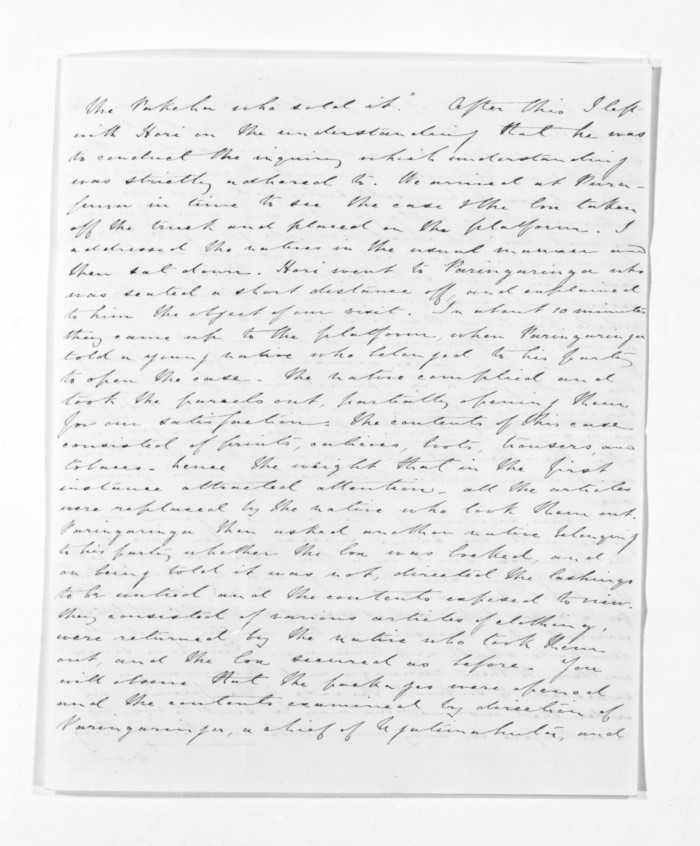 the Pakeha who sold it". After this I left
with Hori on the understanding that he was
to conduct the inquiry which understanding
was strictly adhered to. We arrived at
in time to see the case & the box taken
off the truck and placed on the platform. I
addressed the natives in the usual manner and
then sat down. Hori went to Paringaringa who
was seated a short distance off and explained
to him the object of our visit. In about 10 minutes
they came up to the platform, when Paringaringa
told a young native who belonged to his party
to open the case. The native complied and
took the parcels out, partially opening them
for our satisfaction. The contents of this case
consisted of prints, calicoes, boots, trousers, and
tobacco - hence the weight that in the first
instance attracted attention. all the articles
were replaced by the native who took them out.
Paringaringa then asked another native belonging
to his party whether the box was locked, and
on being told it was not, directed the lashings
to be untied and the contents exposed to view.
they consisted of various articles of clothing,
were returned by the native who took them
out, and the box secured as before. You
will observe that the packages were opened
and the contents examined by direction of
Paringaringa, a chief of Ngatimahuta, and